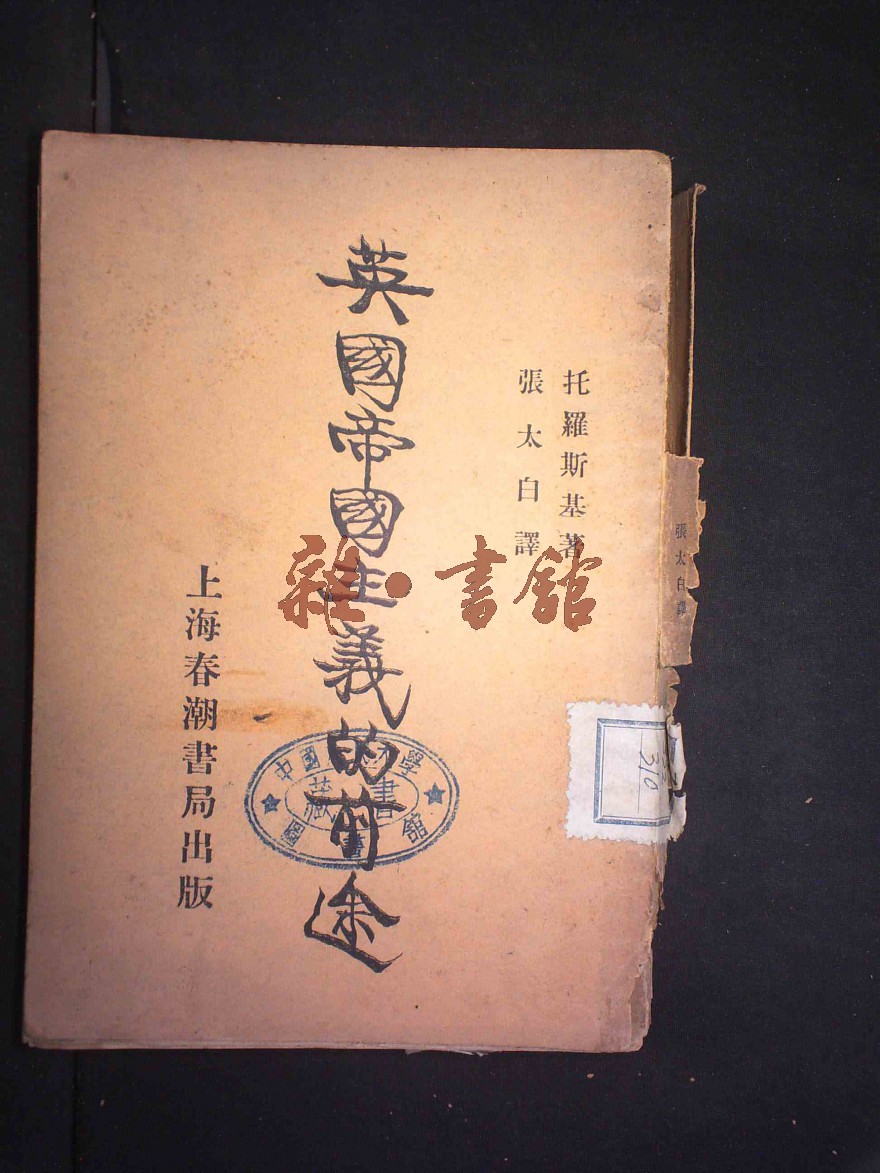 托羅斯基著
張太白譯
英國帝國主義的前途
上海春潮書局出版
張太白譯
雜·書館
中國
學
藏書
圖書館
310